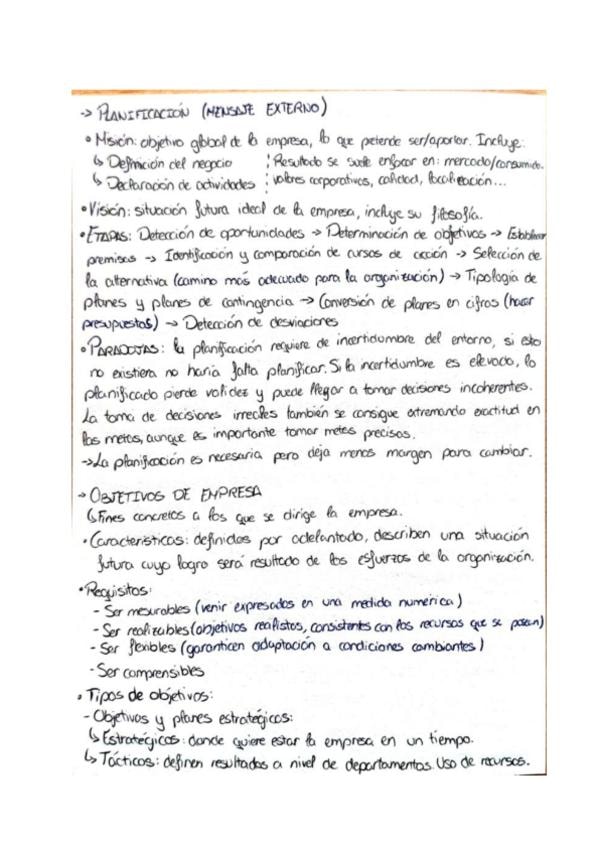 -> PLANIFICACIÓN (MENSAJE EXTERNO)
• Misión: objetivo global de la empresa, lo que pretende ser/aportar. Incluye:
↳ Definición del negocio ¦ Resultado se suele enfocar en: mercado/consumido.
↳ Declaración de actividades ¦ valores corporativos, calidad, localización...
• Visión: situación futura ideal de la empresa, incluye su filosofía.
• ETAPAS: Detección de oportunidades → Determinación de objetivos → Establecer
premisas → Identificación y comparación de cursos de acción → Selección de
la alternativa (camino más adecuado para la organización) → Tipología de
planes y planes de contingencia → Conversión de planes en cifras (hacer
presupuestos) → Detección de desviaciones
• PARADOJAS: la planificación requiere de incertidumbre del entorno, si esto
no existiera no haría falta planificar. Si la incertidumbre es elevada, lo
planificado pierde validez y puede llegar a tomar decisiones incoherentes.
La toma de decisiones irreales también se consigue extremando exactitud en
las metas, aunque es importante tomar metas precisas.
->La planificación es necesaria pero deja menos margen para cambiar.
→ OBJETIVOS DE EMPRESA
↳Fines concretos a los que se dirige la empresa.
• Características: definidos por adelantado, describen una situación
futura cuyo logro será resultado de los esfuerzos de la organización.
• Requisitos:
- Ser mesurables (venir expresados en una medida numérica)
- Ser realizables (objetivos realistas, consistentes con los recursos que se posean)
- Ser flexibles (garanticen adaptación a condiciones cambiantes)
- Ser comprensibles
• Tipos de objetivos:
- Objetivos y planes estratégicos:
↳Estratégicos: donde quiere estar la empresa en un tiempo.
↳ Tácticos: definen resultados a nivel de departamentos. Uso de recursos.